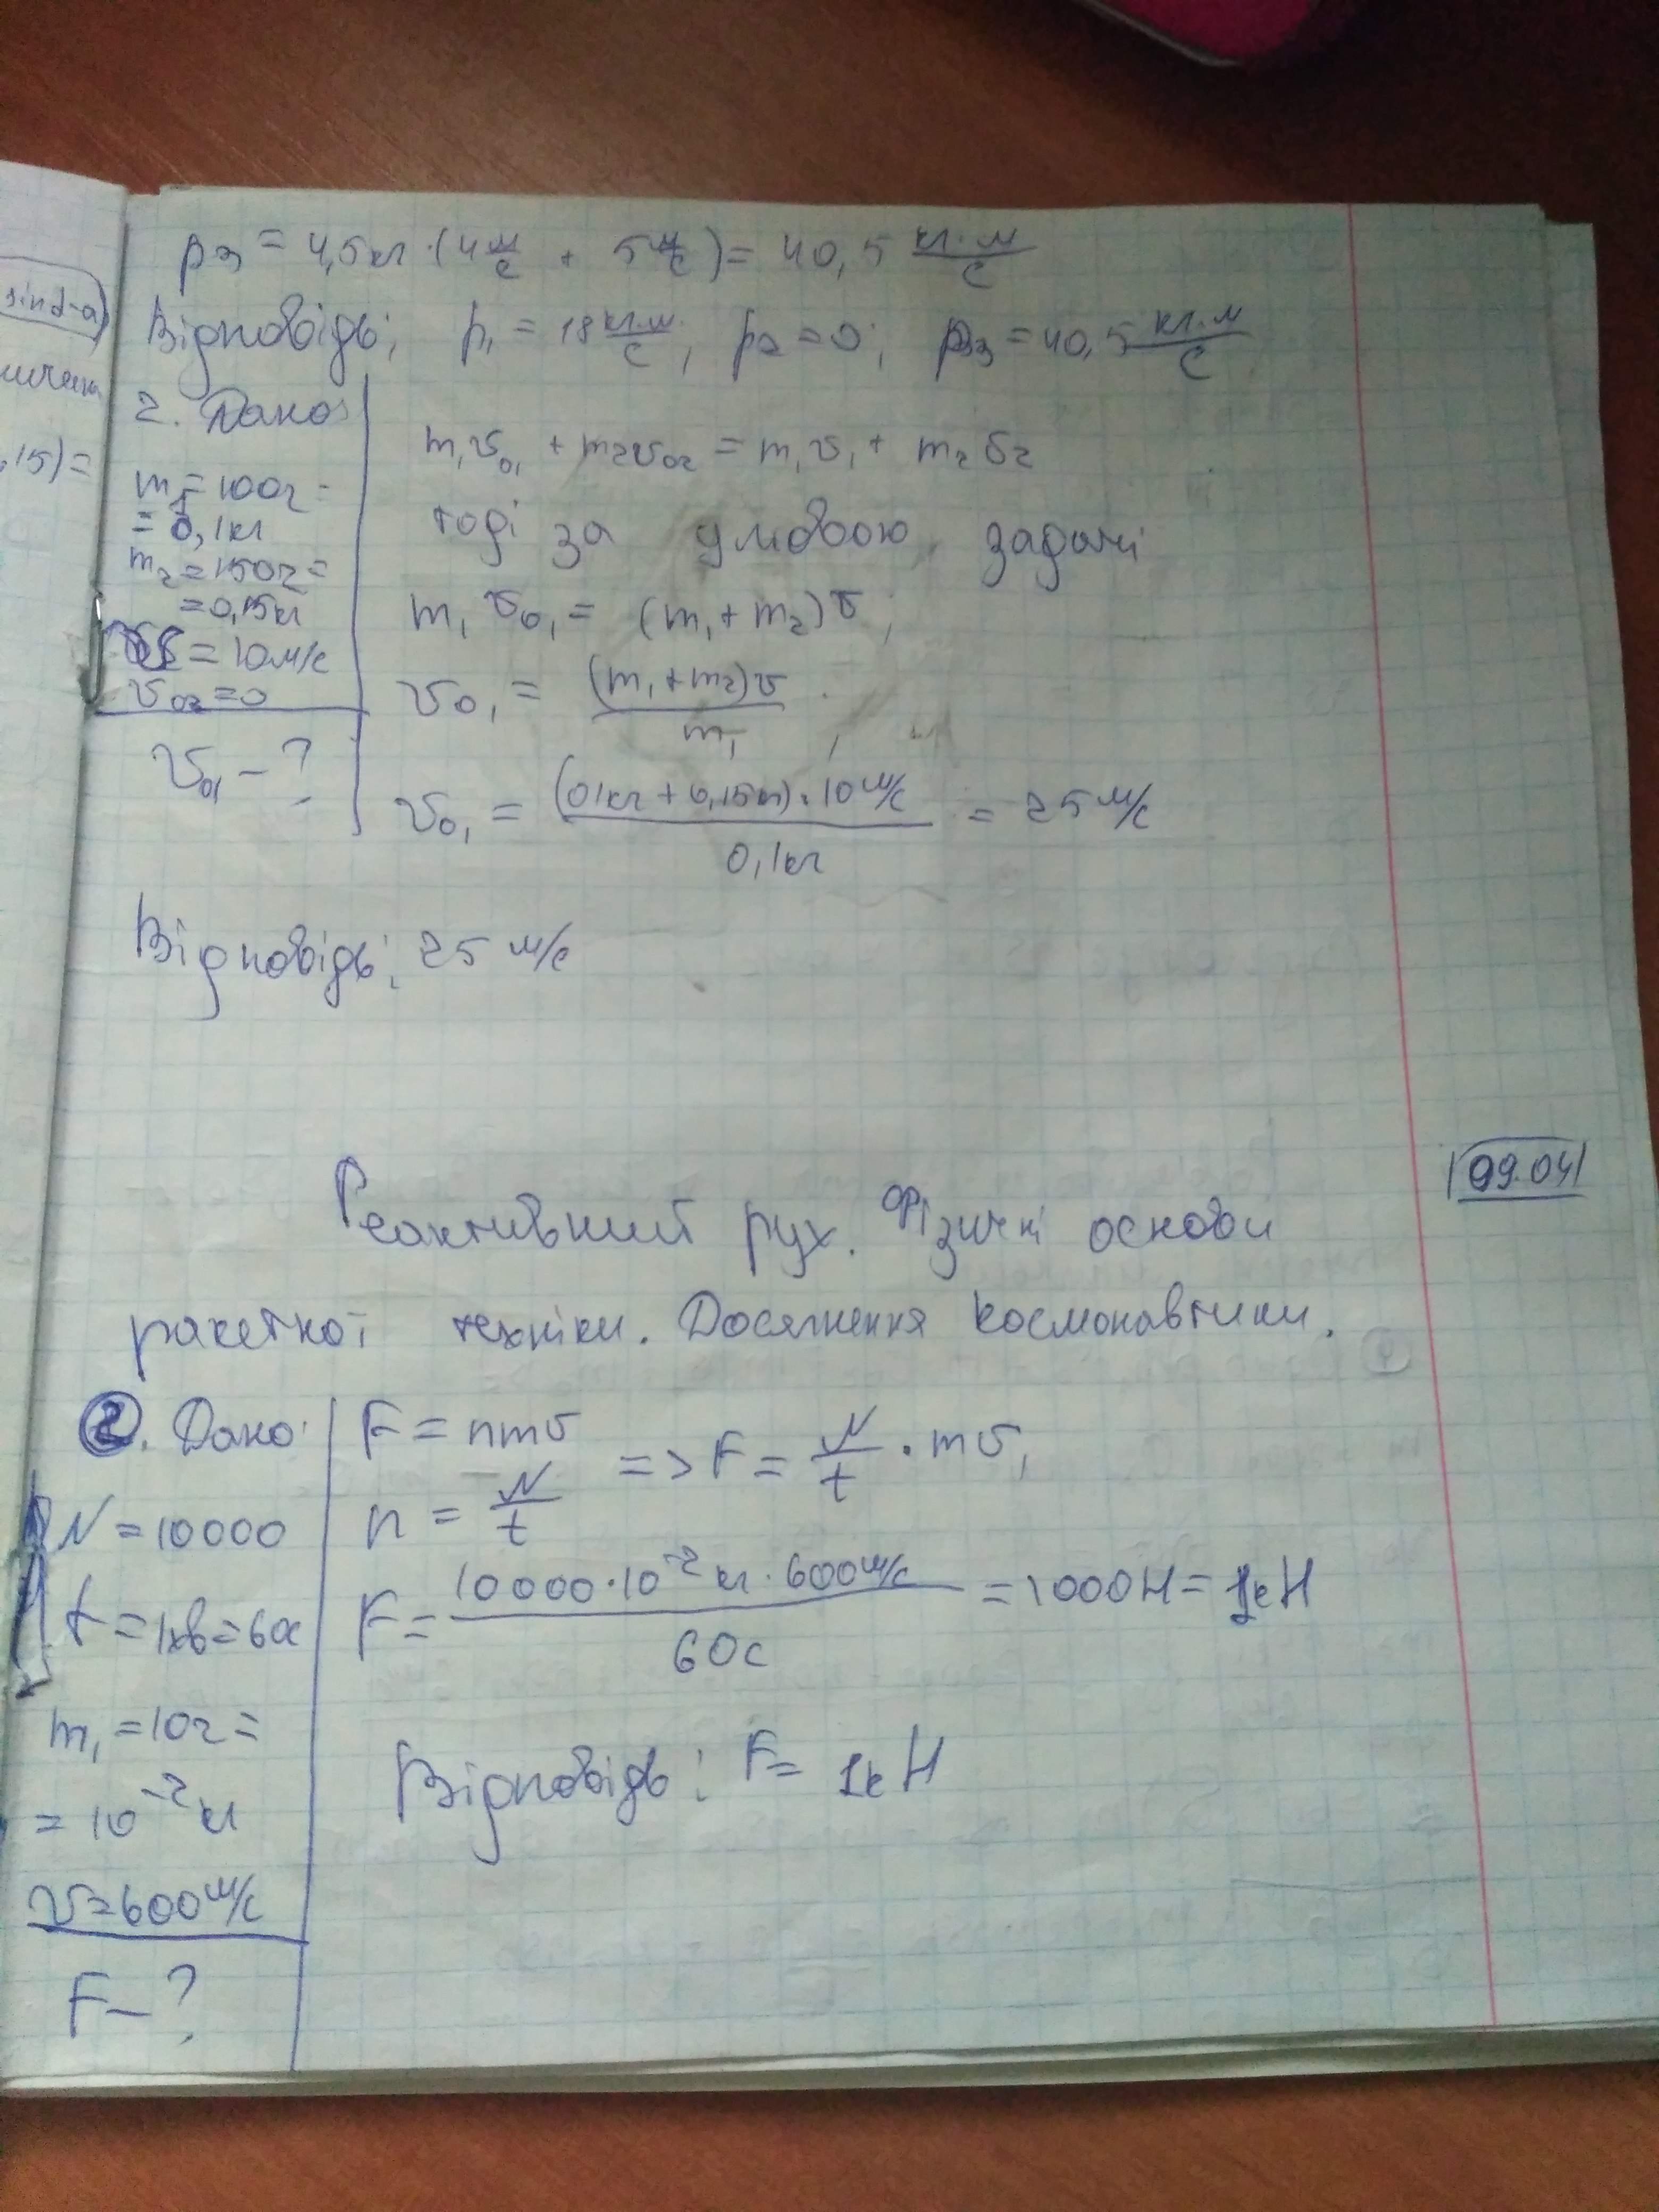 sinα-a)
,15)=
p₃ = 4,5кг·(4 м/с + 5 м/с) = 40,5 кг·м/с
Відповідь: p₁ = 18 кг·м/с; p₂ = 0; p₃ = 40,5 кг·м/с
2. Дано:
m₁ = 100г =
= 0,1кг
m₂ = 150г =
= 0,15кг
= 10м/с
v₀₂ = 0
v₀₁ - ?
m₁v₀₁ + m₂v₀₂ = m₁v₁ + m₂v₂
тоді за умовою задачі
m₁v₀₁ = (m₁ + m₂)v;
v₀₁ = (m₁+m₂)v / m₁;
v₀₁ = (0,1кг + 0,15кг)·10м/с / 0,1кг = 25 м/с
Відповідь: 25 м/с
09.04
Реактивний рух. Фізичні основи
ракетної техніки. Досягнення космонавтики.
2. Дано:
N = 10000
t = 1хв = 60с
m₁ = 10г =
= 10⁻² кг
v = 600 м/с
F - ?
F = nmv
n = N/t => F = N/t · mv,
F = 10000·10⁻² кг·600м/с / 60с = 1000Н = 1кН
Відповідь: F = 1кН